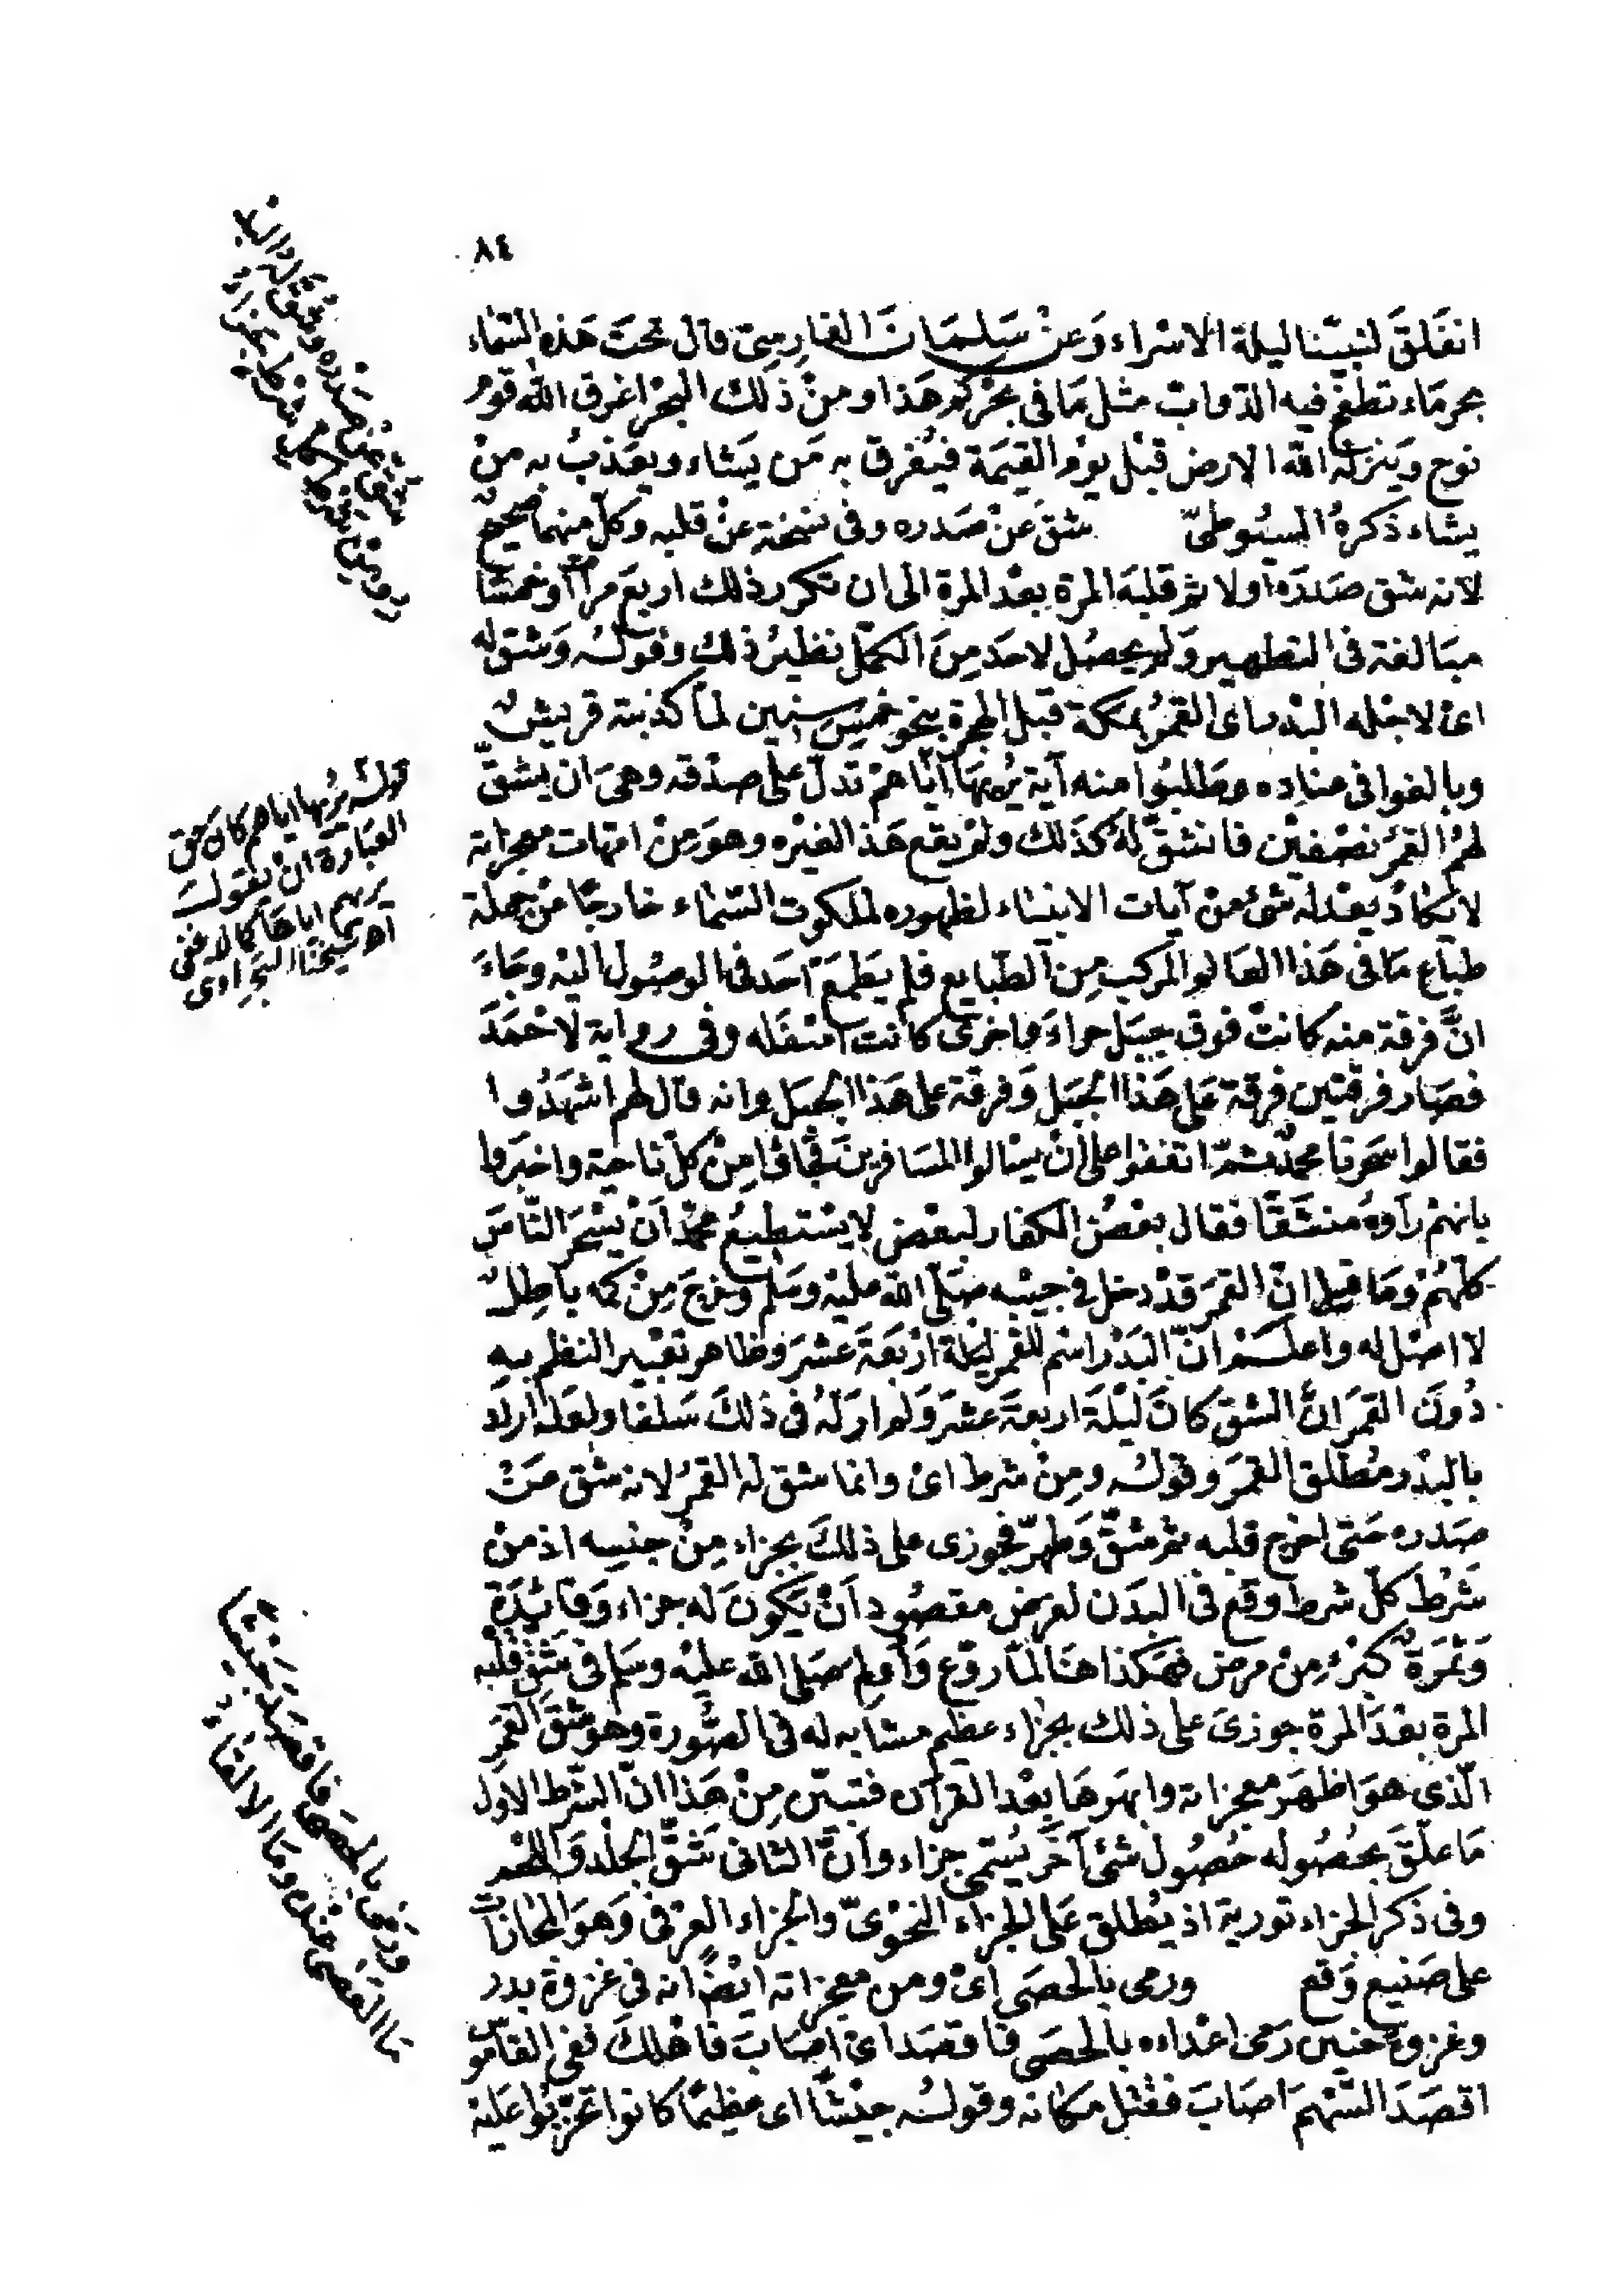 ٨٤
انفَلقَ لنبيّنا ليلة الاسْراء وَعنْ سَلمَانَ الفارِسِىّ قال تحتَ هَذه السّمَاء
بحر مَاء تطفح فيه الدّوابّ مثل مَا فى بحْركم هَذا ومنْ ذلك البحْر اغرق الله قوْم
نوح وَينزله الله الارض قبْل يوْم القيمَة فيُغرق به مَن يَشاء ويعَذبُ به منْ
يشاء ذكرهُ السيُوطىّ شقَ عَنْ صَدره وفى نسْخة عنْ قلبه وكلّ منهما صحيحٌ
لانه شق صَدرَه أولا ثم قلبَه المرة بعْد المرة الى ان تكرر ذلك اربعَ مرا أو خمسًا
مبَالغة فى التطهير وَلم يحصُل لاحَد مِنَ الكمّل نظيرُ ذلك وقولُه وَشق له
اىْ لاجْله البْدر اى القمَرُ بمكة قبل الهجرة بنحو خمْسِ سنين لما كذبته قريشٌ
وبالغوا فى عناده وطَلبُوا منه آية يُريهَا ايّاهمْ تدلّ على صدْقه وهىَ ان يشقّ
لهُمْ القمَرُ نصْفيْن فانشقّ لهُ كَذلك ولم يقع هَذا لغيْره وهوَ مِنْ امّهات معجزاته
لا يكادُ يعْدله شئ منْ آيات الانبيَاء لظهوره لملكوت السّماء خارجًا منْ جملة
طباع مَا فى هَذا العالم المركب مِن الطبايع فلم يَطمَعْ احَد فى الوصُول اليْه وجَاءَ
انَّ فرقة منه كانتْ فوق جبَل حراءَ واخرى كانت اسْفَله وفى رواية لاحْمَدَ
فصَار فرقتيْن فرقة عَلى هَذا الجبَل وَفرقة على هَذا الجبَل وانه قال لهم اشهَدُوا
فقالوا سَحَرنا محمّد ثمّ اتفقوا على انْ يسْالوا المسَافرينَ فجاؤا مِنْ كلّ ناحيَة واخبَروا
بانهمْ رَآوهُ منشَقًّا فقال بعْضُ الكفار لبعْض لا يسْتطيعُ محمّد أنْ يسْحرَ النّاسَ
كلّهُمْ وَمَا قيل انّ القمَر قدْ دخل فى جيْبه صَلّى الله عليْه وسَلم وَخرجَ مِنْ كمّه باطِلٌ
لا اصْل له واعلمْ انّ البَدْر اسْم للقمَر ليْلة ارْبَعَةَ عشرَ وظاهر تعْبير النظم بهِ
دُونَ القمَر انَّ الشق كانَ ليْلَةَ اربعةَ عشَرَ وَلم ارَ لهُ فى ذلكَ سَلفًا ولعَله اراد
بالبدْر مُطلق القمَر وقولُه ومِنْ شرط اىْ وانما شق له القمَرُ لانه شق عَنْ
صَدره حَتى اخرج قلبه ثم شقّ وَطهّر فجوزى على ذلكَ بجزاء مِنْ جنسِه اذ منْ
شَرْط كلّ شرط وقع فى البدَن لغرَض مقصُود اَنْ يَكونَ لهَ جزاء وَفائدَة
وَثمَرةٌ كبُرْءٍ مِنْ مرض فهَكذا هنَا لمّا روّع وَأولم صَلى الله عليْه وسَلم فى شقّ قلبه
المرة بعْدَ المرة جوزىَ على ذلك بجزاء عظيم مشابه له فى الصُّورة وهو شقَ القمَرِ
الّذى هوَ اظهَرَ معجزاته وابهَرهَا بعْد القرآن فتبيّن مِنْ هَذا انّ الشّرط الاوّل
مَا علّقَ بحصُوله حُصُول شئ آخَر يُسَمّى جزاء وأنّ الثانى شَقَّ الجلْد وَاللحْم
وفى ذكر الجزاء تورية اذ يُطلق عَلى الجزاء النحْوىّ والجزاء العرْفىّ وَهوَ المجازاة
على صَنيع وَقعَ ورمى بالحصَى اىْ ومن معجزاته ايْضًا انه فى غزوة بدر
وغزوة حنين رَمى اعْداءه بالحصَى فاقصَد اىْ اصَابَ فاهْلكَ ففى القامو
اقصَدَ السّهْم اصَابَ فقتل مكانه وقولُه جيْشًا اى عظيمًا كانوا تحزّبُوا عَليْه
شق عنْ صَدره وشق له البد
رومن شرط كلّ شرط جزاء
قولُه يُريها ايّاهم كان حق
العبَارة انْ يقولَ
يريهم اياها كما لا يخفى
اه شيخنا البجراوى
ورمى بالحصى فاقصَدَ جيْشًا
مَا العَصى عنْده ومَا الالقاء